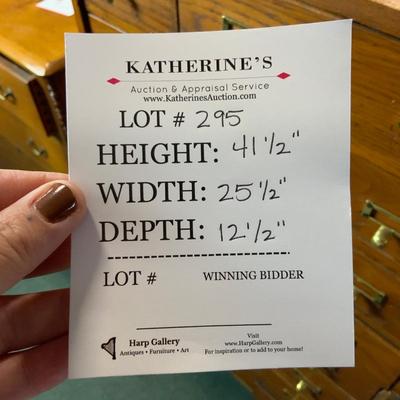 KATHERINE'S
Auction & Appraisal Service
www.KatherinesAuction.com
LOT # 295
HEIGHT: 41 1/2"
WIDTH: 25 1/2"
DEPTH: 12 1/2"
LOT # WINNING BIDDER
Harp Gallery
Antiques • Furniture • Art
Visit
www.HarpGallery.com
For inspiration or to add to your home!